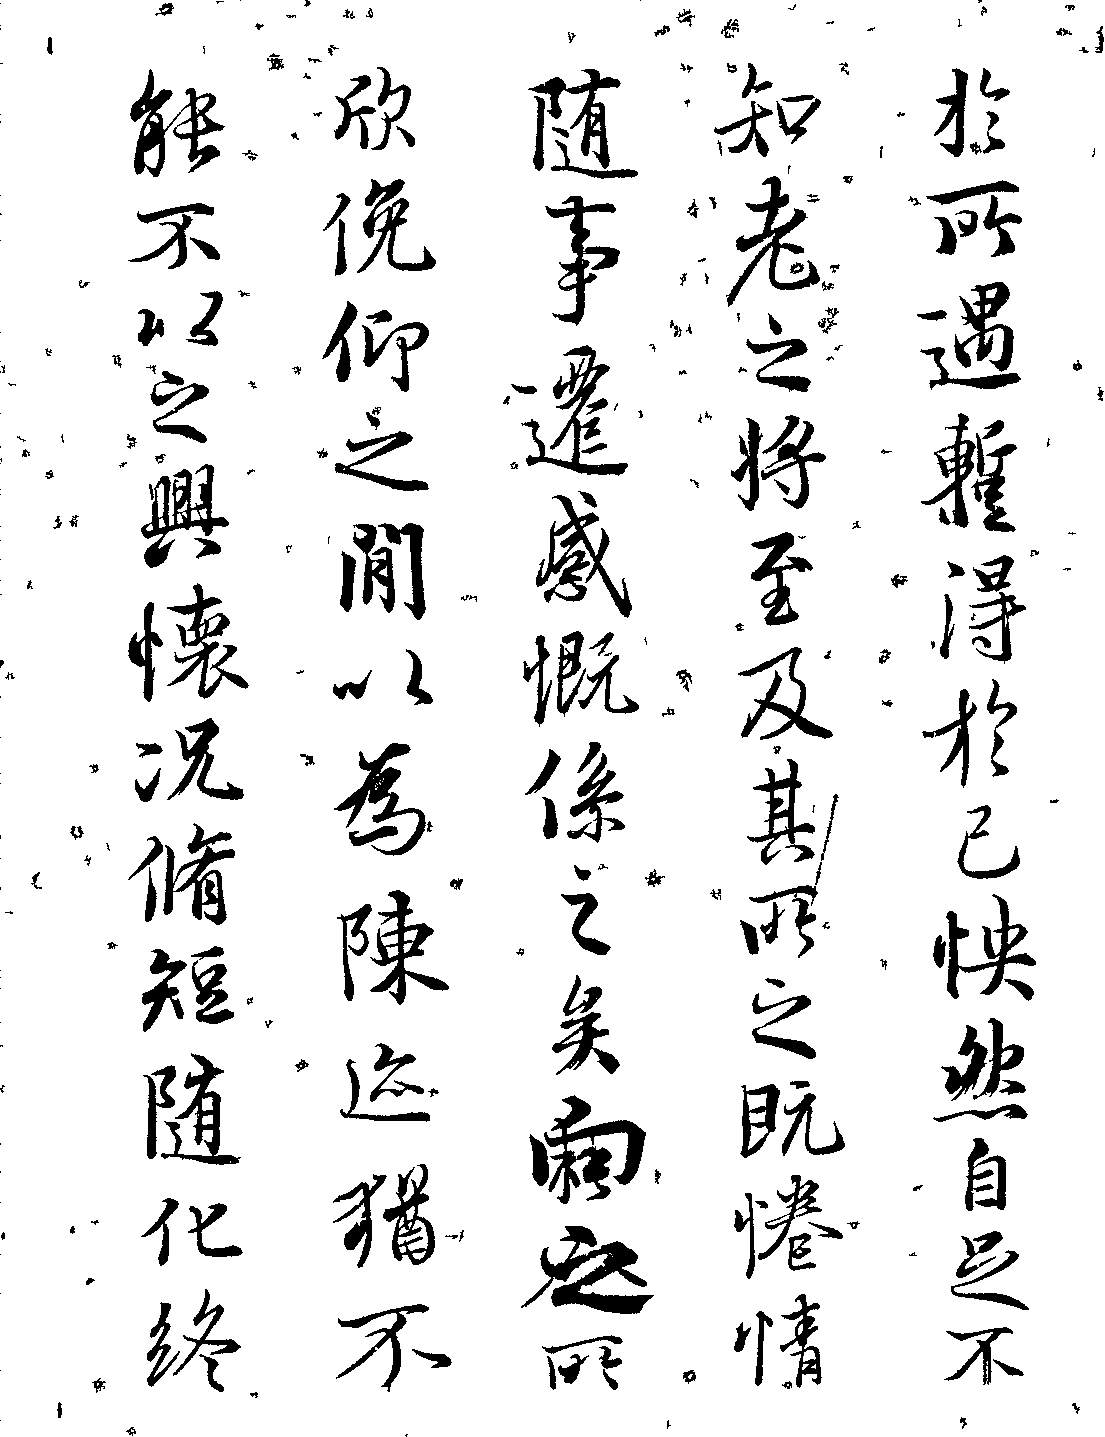 於所遇暫得於己怏然自足不
知老之將至及其所之既惓情
随事遷感慨係之矣向之所
欣俛仰之間以為陳迹猶不
能不以之興懷况脩短随化終